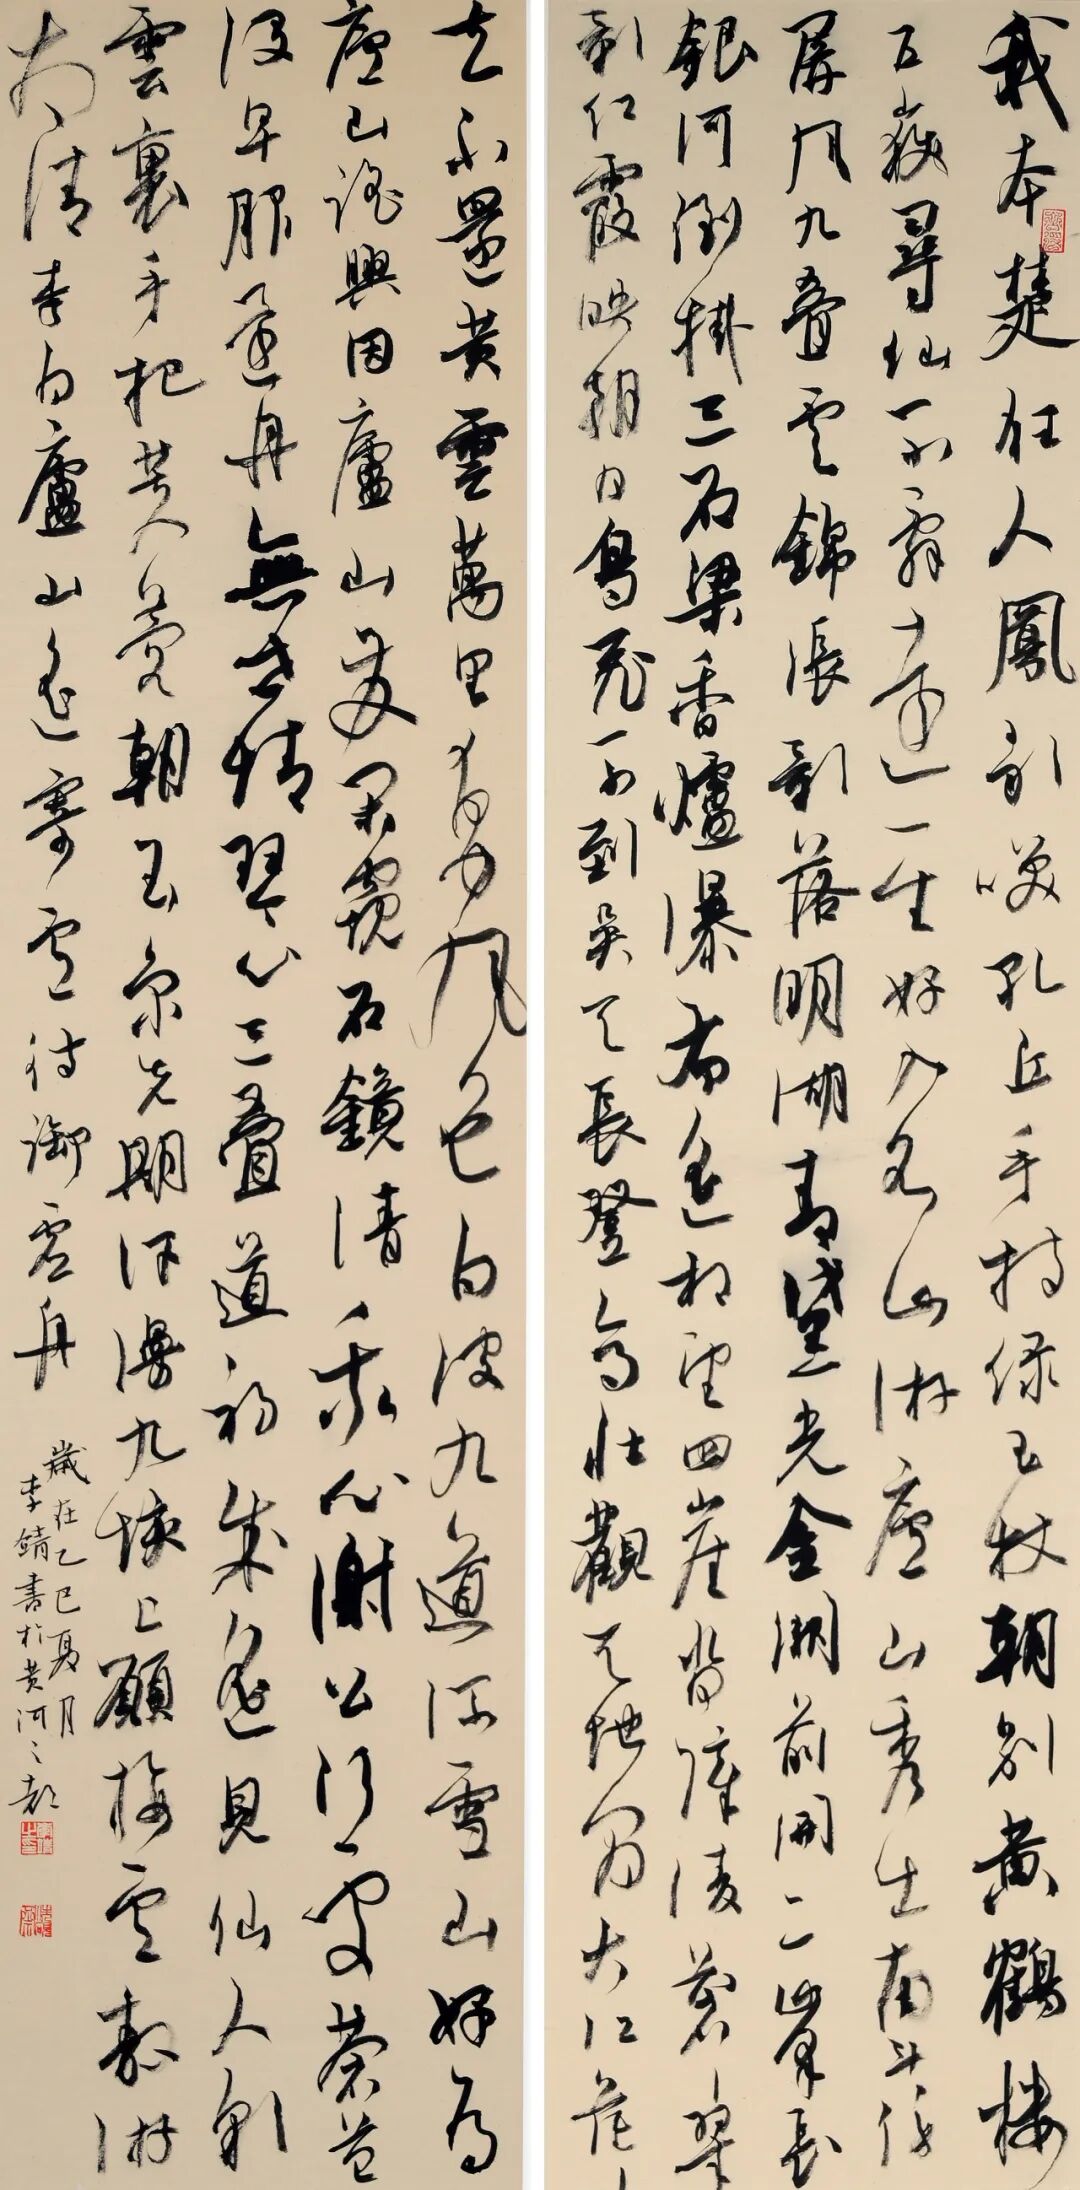 我本楚狂人鳳歌咲孔丘手持緑玉杖朝别黄鶴楼
五嶽尋仙不辭遠一生好入名山游廬山秀出南斗傍
屏風九疊雲錦張影落明湖青黛光金闕前開二峯長
銀河倒掛三石梁香爐瀑布遙相望回崖沓嶂凌蒼翠
影紅霞映朝日鳥飛不到吳天長登高壯觀天地間大江茫々
去不還黄雲萬里動風色白波九道流雪山好為
廬山謠興因廬山發閑窺石鏡清我心謝公行處蒼苔
沒早服還丹無世情琴心三疊道初成遙見仙人彩
雲裏手把芙蓉朝玉京先期汗漫九垓上願接盧敖游
太清 李白廬山遙寄盧侍御虛舟
歲在乙巳夏月
李書於黄河之都